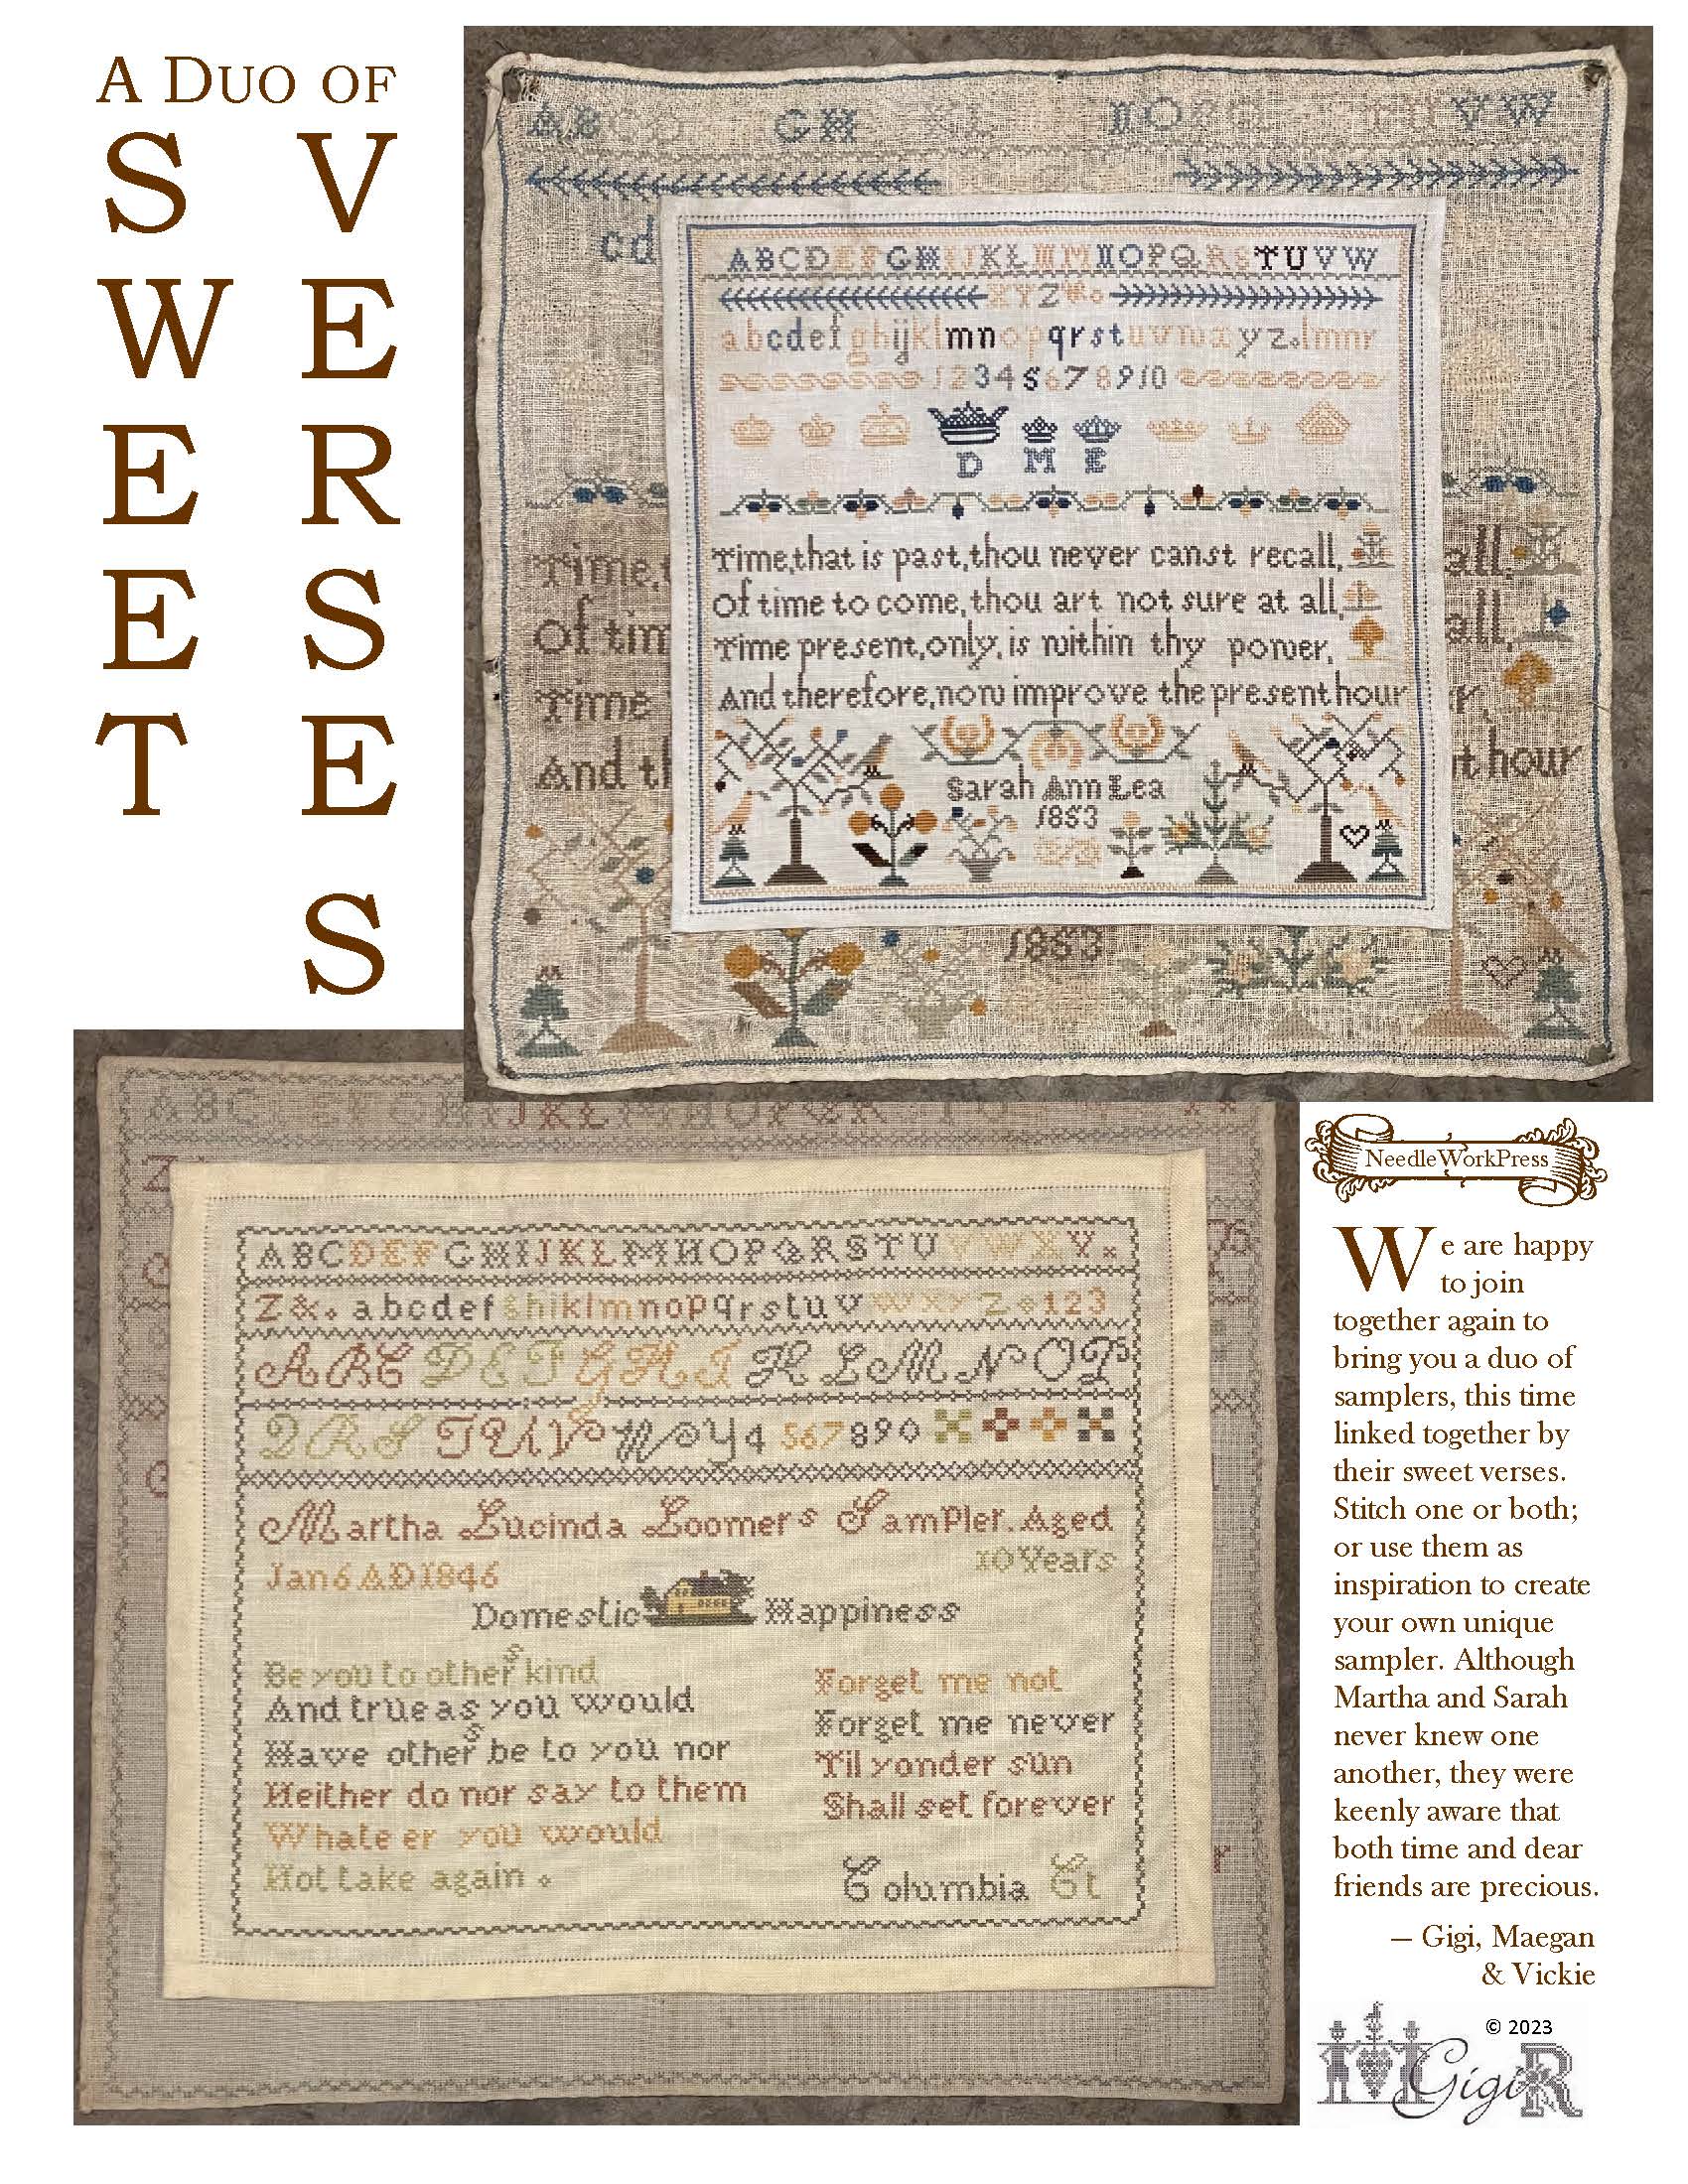 A DUO OF
SWEET VERSES
AB GH KL NOPQ TUVW
cd
ABCDEFGHIJKLMNOPQRSTUVW
XYZ&
abcdefghijklmnopqrstuvwxyz.lmnr
12345678910
D M E
Time,that is past,thou never canst recall,
Of time to come,thou art not sure at all,
Time present,only,is within thy power,
And therefore,now improve the present hour
Sarah Ann Lea
1853
Time,t all,
Of tim all,
Time r,
And th t hour
1853
ABC EFGHIJKLMNOPQR
Z
ABCDEFGHIJKLMNOPQRSTUVWXY
Z& abcdefghiklmnopqrstuvwxyz 123
ABCDEFGHIKLMNOP
QRSTUVWXY4 567890
Martha Lucinda Loomers Sampler.Aged
Jan6AD1846 10Years
Domestic Happiness
Be you to others kind
And true as you would
Have others be to you nor
Neither do nor say to them
Whate er you would
Not take again
Forget me not
Forget me never
Til yonder sun
Shall set forever
Columbia Ct
NeedleWorkPress
We are happy
to join
together again to
bring you a duo of
samplers, this time
linked together by
their sweet verses.
Stitch one or both;
or use them as
inspiration to create
your own unique
sampler. Although
Martha and Sarah
never knew one
another, they were
keenly aware that
both time and dear
friends are precious.
— Gigi, Maegan
& Vickie
© 2023
GigiR